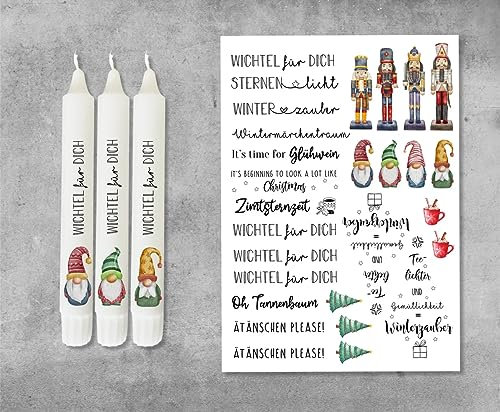 WICHTEL für DICH
WICHTEL für DICH
WICHTEL für DICH
WICHTEL für DICH
STERNENlicht
WINTERzauber
Wintermärchentraum
It's time for Glühwein
IT'S BEGINNING TO LOOK A LOT LIKE
Christmas
Zimtsternzeit
WICHTEL für DICH
WICHTEL für DICH
WICHTEL für DICH
Oh Tannenbaum
ÄTÄNSCHEN PLEASE!
ÄTÄNSCHEN PLEASE!
Tee-
lichter
UND
Gemütlichkeit
=
Winterzauber
Tee-
lichter
UND
Gemütlichkeit
=
Winterzauber